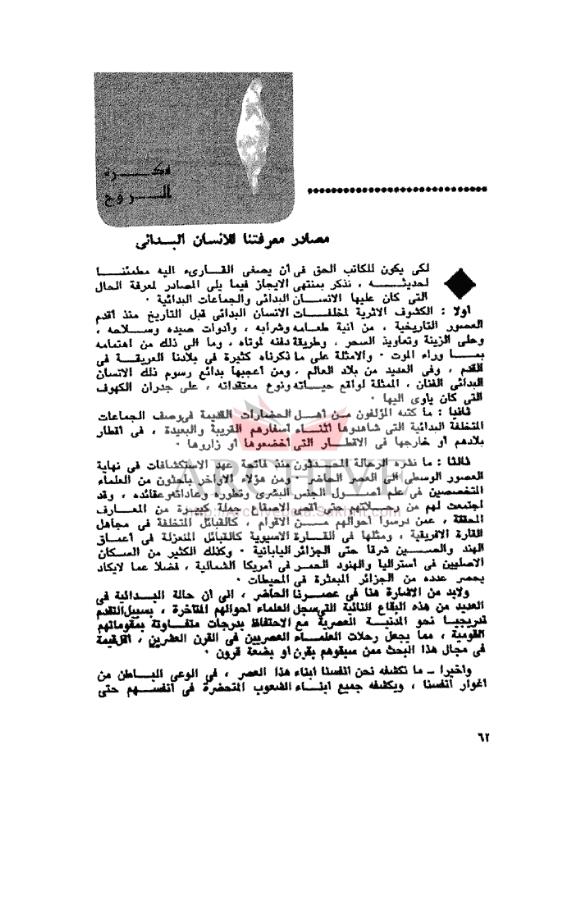 فكرة
الروح
مصادر معرفتنا للانسان البدائى
لكى يكون للكاتب الحق فى أن يصغى القارىء اليه مطمئنا
لحديثه ، نذكر بمنتهى الايجاز فيما يلى المصادر لمعرفة الحال
التى كان عليها الانسان البدائى والجماعات البدائية ٠
اولا : الكشوف الاثرية لمخلفات الانسان البدائى قبل التاريخ منذ اقدم
العصور التاريخية ، من آنية طعامه وشرابه ، وأدوات صيده وسلاحه ،
وحلى الزينة وتعاويذ السحر ، وطريقة دفنه لموتاه ، وما الى ذلك من اهتمامه
بما وراء الموت ٠ والامثلة على ما ذكرناه كثيرة فى بلادنا العريقة فى
القدم ، وفى العديد من بلاد العالم ، ومن أعجبها بدائع رسوم ذلك الانسان
البدائى الفنان ، الممثلة لواقع حياته ونوع معتقداته ، على جدران الكهوف
التى كان يأوى اليها ٠
ثانيا : ما كتبه المؤلفون من أهل الحضارات القديمة فى وصف الجماعات
المتخلفة البدائية التى شاهدوها أثناء أسفارهم القريبة والبعيدة ، فى أقطار
بلادهم أو خارجها فى الاقطار التى أخضعوها أو زاروها ٠
ثالثا : ما نشره الرحالة المحدثون منذ فاتحة عهد الاستكشافات فى نهاية
العصور الوسطى الى العصر الحاضر ٠ ومن هؤلاء الاواخر باحثون من العلماء
المتخصصين فى علم أصول الجنس البشرى وتطوره وعاداته وعقائده ، وقد
اجتمعت لهم من رحلاتهم حتى أقصى الاصقاع جملة كبيرة من المعارف
المحققة ، عمن درسوا أحوالهم من الاقوام ، كالقبائل المتخلفة فى مجاهل
القارة الافريقية ، ومثلها فى القارة الاسيوية كالقبائل المنعزلة فى أعماق
الهند والصين شرقا حتى الجزائر اليابانية ٠ وكذلك الكثير من السكان
الاصليين فى استراليا والهنود الحمر فى أمريكا الشمالية ، فضلا عما لايكاد
يحصر عدده من الجزائر المبعثرة فى المحيطات ٠
ولابد من الاشارة هنا فى عصرنا الحاضر ، الى ان حالة البدائية فى
العديد من هذه البقاع النائية التى سجل العلماء أحوالهم المتأخرة ، بسبيل التقدم
تدريجيا نحو المدنية العصرية مع الاحتفاظ بدرجات متفاوتة بمقوماتهم
القومية ، مما يجعل رحلات العلماء العصريين فى القرن العشرين ، أقل قيمة
فى مجال هذا البحث ممن سبقوهم بقرن أو بضعة قرون ٠
وأخيرا ــ ما نكشفه نحن أنفسنا أبناء هذا العصر ، فى الوعى الباطن من
أغوار أنفسنا ، ويكشفه جميع أبناء الشعوب المتحضرة فى أنفسهم حتى
٦٢
ARCHIVE